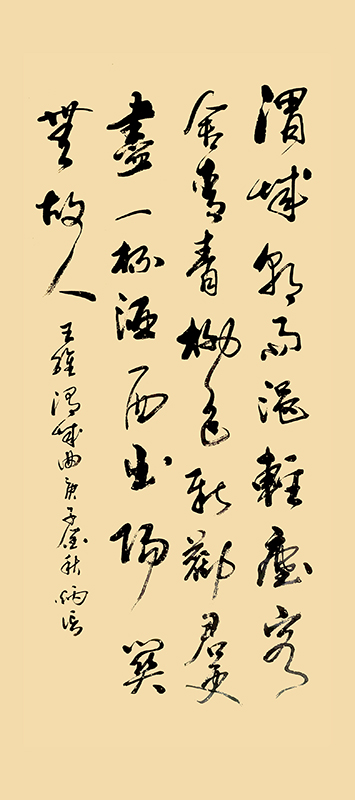 渭城朝雨浥輕塵客
舍青青柳色新勸君更
盡一杯酒西出陽關
無故人
王維渭城曲庚子金秋炳